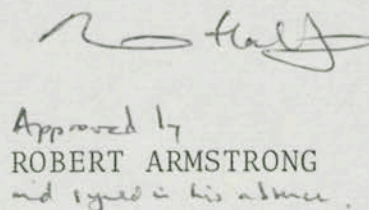 Approved by
ROBERT ARMSTRONG
and signed in his absence.